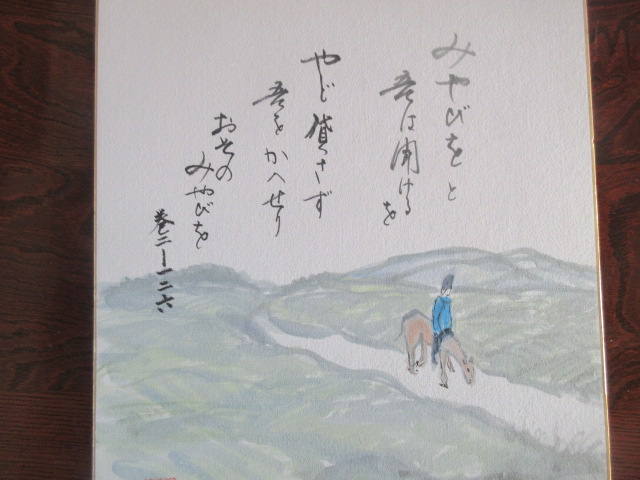 みやびをと
吾は聞けるを
やど貸さず
吾をかへせり
おその
みやびを
巻二ー一二六